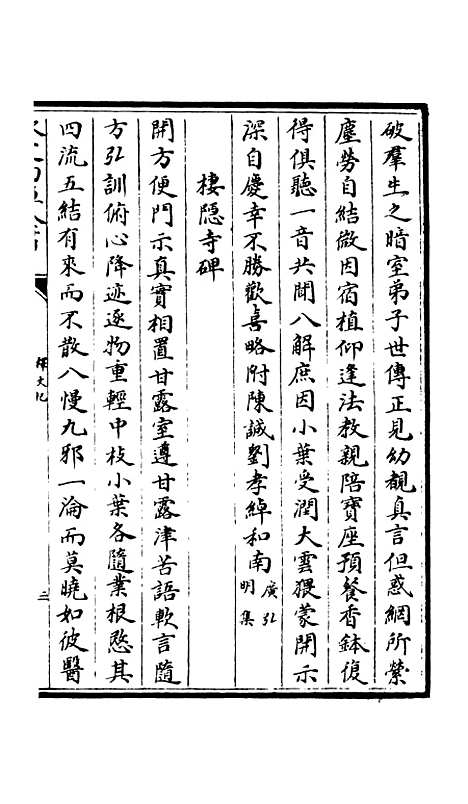 破羣生之暗室弟子世傳正見幼覿真言但惑網所縈
塵勞自結微因宿植仰逢法教親陪寶座預餐香鉢復
得俱聽一音共聞八解庶因小葉受潤大雲猥蒙開示
深自慶幸不勝歡喜略附陳誠劉孝綽和南廣弘明集
棲隱寺碑
開方便門示真實相置甘露室遵甘露津苦語軟言隨
方弘訓俯心降迹逐物重輕中枝小葉各隨業根愍其
四流五結有來而不散八慢九邪一淪而莫曉如彼醫
釋文紀
三